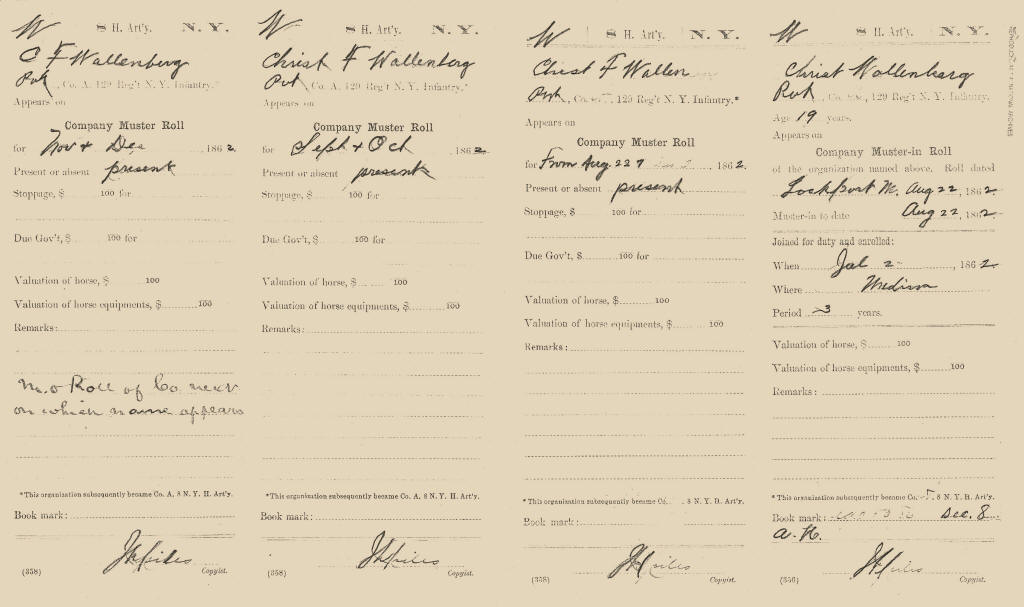 W 8 H. Art'y. N. Y.
C F Wallenberg
Pvt, Co. A, 129 Reg't N. Y. Infantry.*
Appears on
Company Muster Roll
for Nov & Dec, 1862.
Present or absent present
Stoppage, $ 100 for
Due Gov't, $ 100 for
Valuation of horse, $ 100
Valuation of horse equipments, $ 100
Remarks:
M. O Roll of Co next
on which name appears
*This organization subsequently became Co. A, 8 N. Y. H. Art'y.
Book mark:
(358) Copyist.
W 8 H. Art'y. N. Y.
Christ F Wallenberg
Pvt, Co. A, 129 Reg't N. Y. Infantry.*
Appears on
Company Muster Roll
for Sept & Oct, 1862
Present or absent present
Stoppage, $ 100 for
Due Gov't, $ 100 for
Valuation of horse, $ 100
Valuation of horse equipments, $ 100
Remarks:
*This organization subsequently became Co. A, 8 N. Y. H. Art'y.
Book mark:
(358) Copyist.
W 8 H. Art'y. N. Y.
Christ F Wallen
Pvt, Co. 129 Reg't N. Y. Infantry.*
Appears on
Company Muster Roll
for From Aug 22, 1862.
Present or absent present
Stoppage, $ 100 for
Due Gov't, $ 100 for
Valuation of horse, $ 100
Valuation of horse equipments, $ 100
Remarks:
*This organization subsequently became Co. 8 N. Y. H. Art'y.
Book mark:
(358) Copyist.
W 8 H. Art'y. N. Y.
Christ Wallenberg
Pvt, Co. 129 Reg't N. Y. Infantry.
Age 19 years.
Appears on
Company Muster-in Roll
of the organization named above. Roll dated
Lockport Aug 22, 1862.
Muster-in to date Aug 22, 1862.
Joined for duty and enrolled:
When Jul 2, 1862
Where Medina
Period 3 years.
Valuation of horse, $ 100
Valuation of horse equipments, $ 100
Remarks:
*This organization subsequently became Co. 8 N. Y. H. Art'y.
Book mark: Dec. 8
(356) Copyist.
REPRODUCED AT THE NATIONAL ARCHIVES